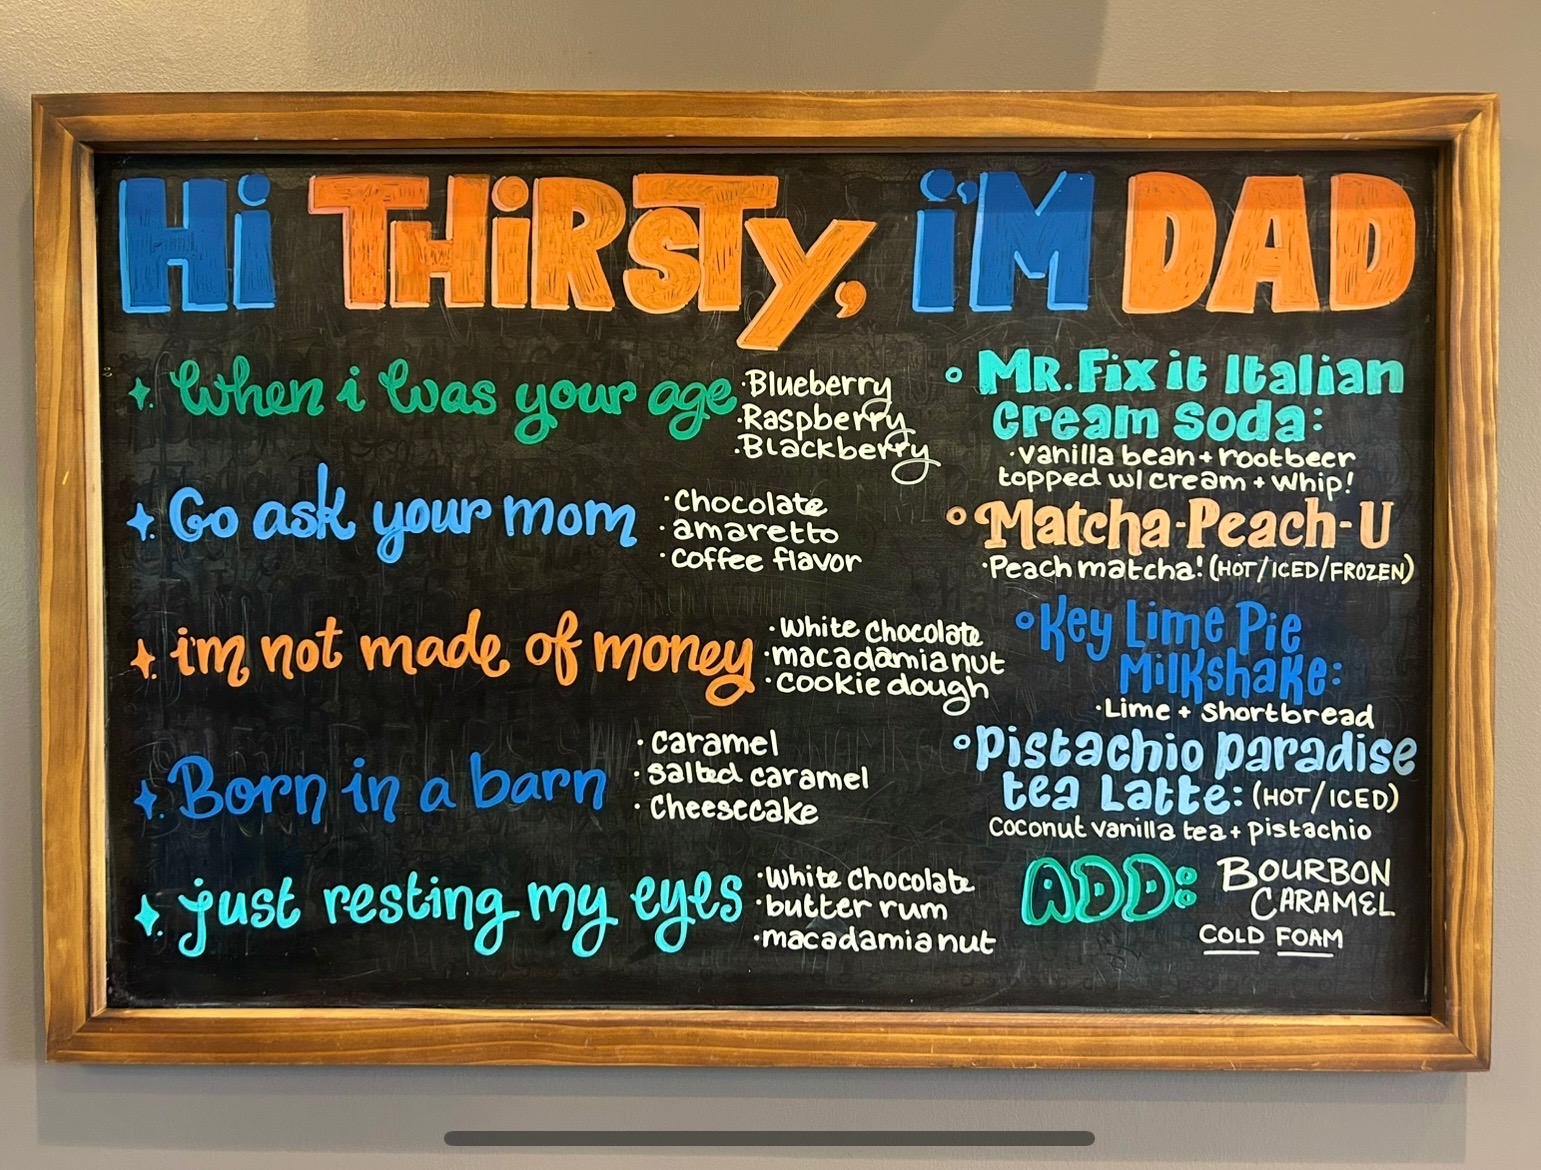 Hi THiRSTy, i'M DAD
When i was your age
·Blueberry
·Raspberry
·Blackberry
Go ask your mom
·Chocolate
·amaretto
·coffee flavor
i'm not made of money
·White chocolate
·macadamia nut
·cookie dough
Born in a barn
·caramel
·salted caramel
·cheesecake
just resting my eyes
·White chocolate
·butter rum
·macadamia nut
MR. Fix it Italian
cream soda:
·vanilla bean + rootbeer
topped w/ cream + whip!
Matcha-Peach-U
·Peach matcha! (HOT/ICED/FROZEN)
Key Lime Pie
Milkshake:
·Lime + shortbread
Pistachio paradise
tea Latte: (HOT/ICED)
coconut vanilla tea + pistachio
ADD: BOURBON
CARAMEL
COLD FOAM